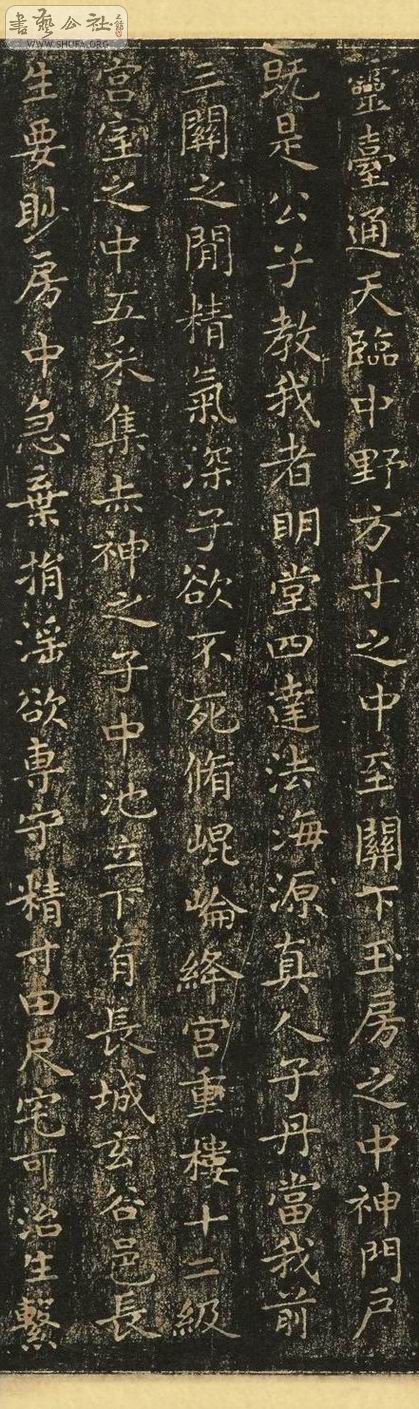 書藝公社
WWW.SHUFA.ORG
靈臺通天臨中野方寸之中至關下玉房之中神門戶
既是公子教我者明堂四達法海源真人子丹當我前
三關之閒精氣深子欲不死脩崐崘絳宮重樓十二級
宮室之中五采集赤神之子中池立下有長城玄谷邑長
生要眇房中急棄捐淫欲專守精寸田尺宅可治生繫